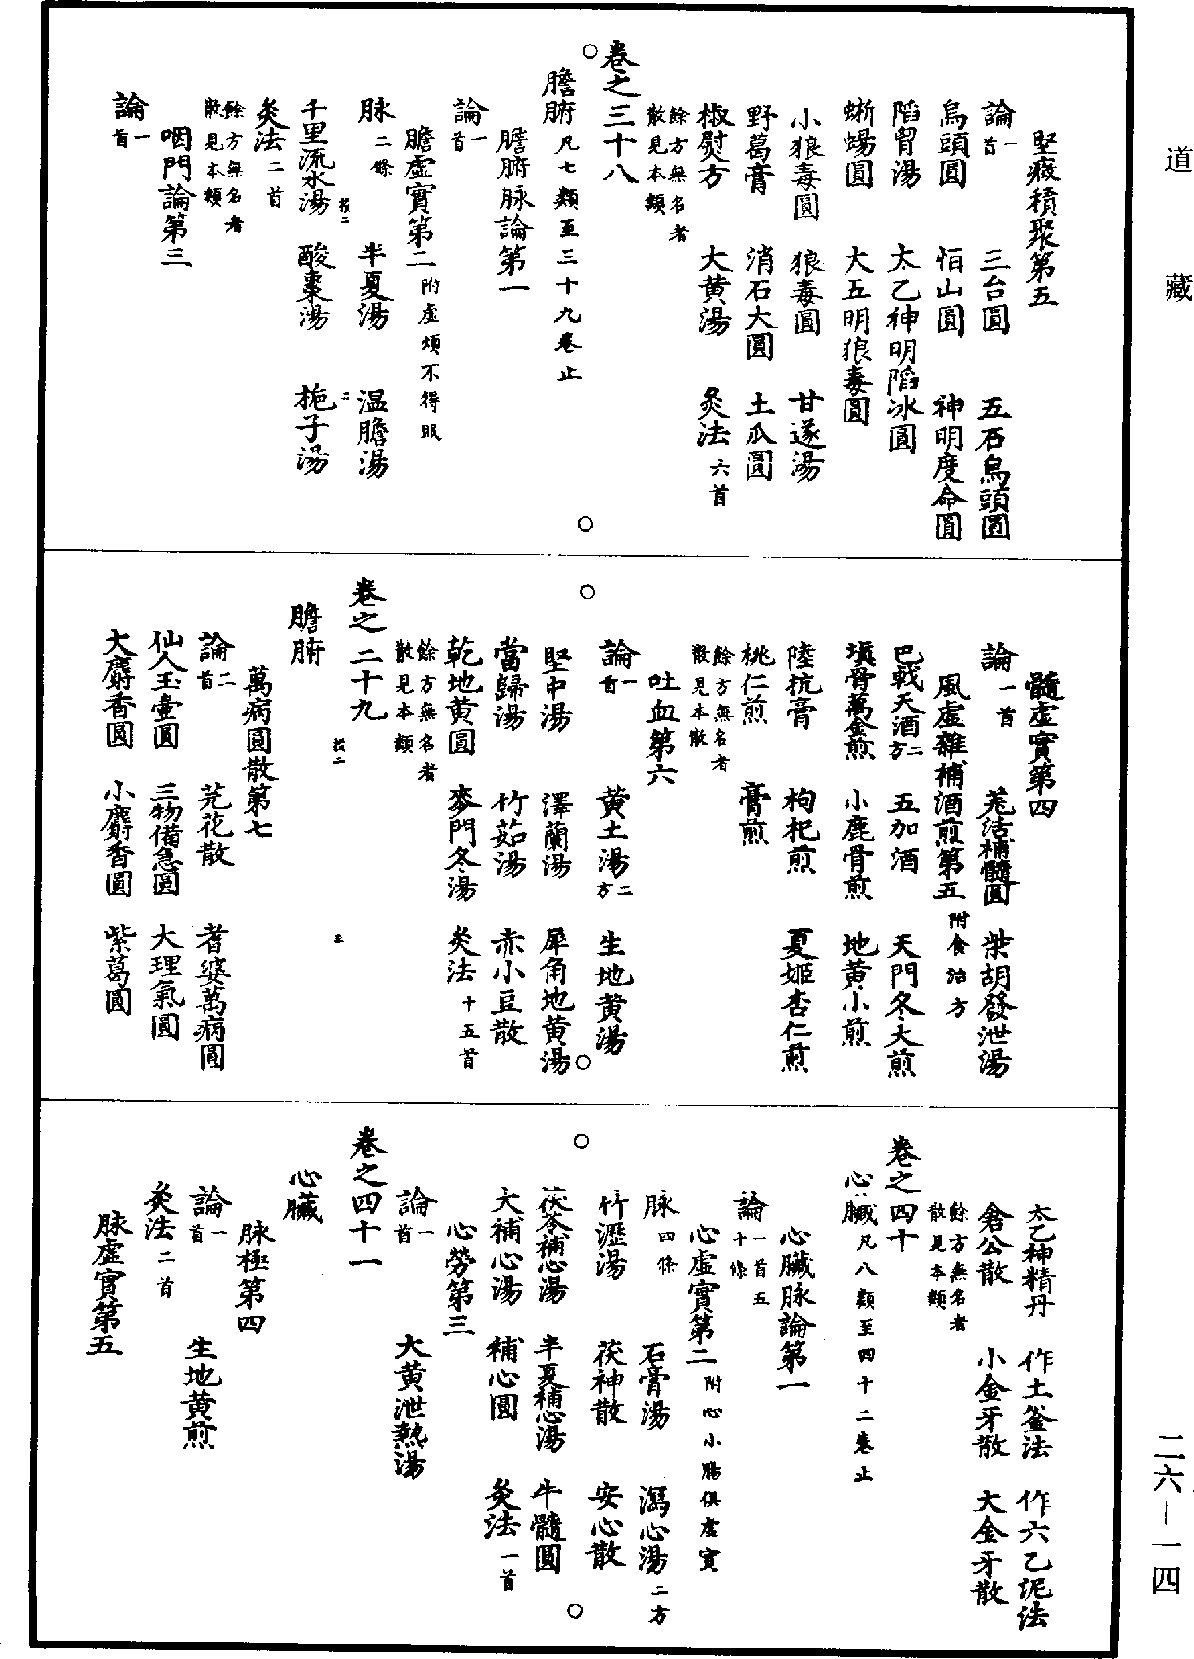 道藏
堅癥積聚第五
論一首　三台圓　五石烏頭圓
烏頭圓　恒山圓　神明度命圓
陷胷湯　太乙神明陷冰圓
蜥蜴圓　大五明狼毒圓
小狼毒圓　狼毒圓　甘遂湯
野葛膏　消石大圓　土瓜圓
椒熨方　大黃湯　灸法六首
餘方無名者散見本類
卷之三十八
膽腑凡七類至三十九卷止
膽腑脉論第一
論一首
膽虛實第二附虛煩不得眠
脉二條　半夏湯　温膽湯
千里流水湯　酸棗湯　梔子湯
灸法二首
餘方無名者散見本類
咽門論第三
論一首
髓虛實第四
論一首　羌活補髓圓　柴胡發泄湯
風虛雜補酒煎第五附食治方
巴戟天酒二方　五加酒　天門冬大煎
填骨萬金煎　小鹿骨煎　地黃小煎
陸抗膏　枸杞煎　夏姬杏仁煎
桃仁煎　膏煎
餘方無名者散見本散
吐血第六
論一首　黃土湯二方　生地黃湯
堅中湯　澤蘭湯　犀角地黃湯
當歸湯　竹茹湯　赤小豆散
乾地黃圓　麥門冬湯　灸法十五首
餘方無名者散見本類
卷之二十九
膽腑
萬病圓散第七
論二首　芫花散　耆婆萬病圓
仙人玉壷圓　三物備急圓　大理氣圓
大麝香圓　小麝香圓　紫葛圓
太乙神精丹　作土釜法　作六乙泥法
倉公散　小金牙散　大金牙散
餘方無名者散見本類
卷之四十
心臟凡八類至四十二卷止
心臟脉論第一
論一首五十條
心虛實第二附心小腸俱虛實
脉四條　石膏湯　瀉心湯二方
竹瀝湯　茯神散　安心散
茯苓補心湯　半夏補心湯　牛髓圓
大補心湯　補心圓　灸法一首
心勞第三
論一首　大黃泄熱湯
卷之四十一
心臟
脉極第四
論一首　生地黃煎
灸法二首
脉虛實第五
二六—一四